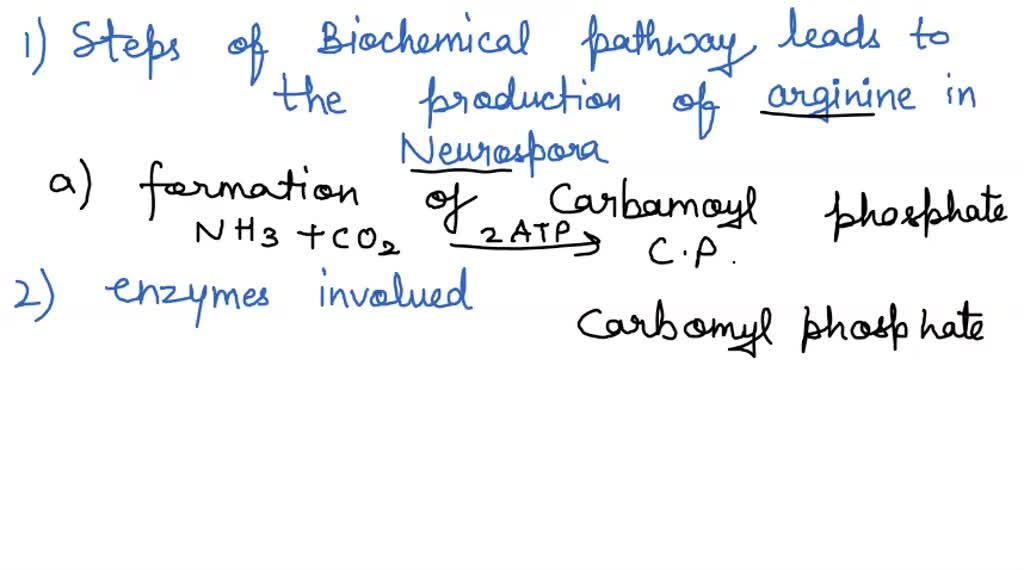 1) Steps of Biochemical pathway leads to
the production of arginine in
Neurospora
a) formation of Carbamoyl phosphate
NH3 + CO2 2 ATP C.P.
2) enzymes involued
Carbomyl phosphate